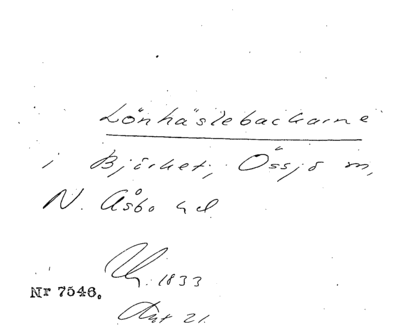 Lönhäslebackarne
i Björket, Össjö m,
N. Åsbo hd
Uh. 1833
Nr 7546.
Akt 21.